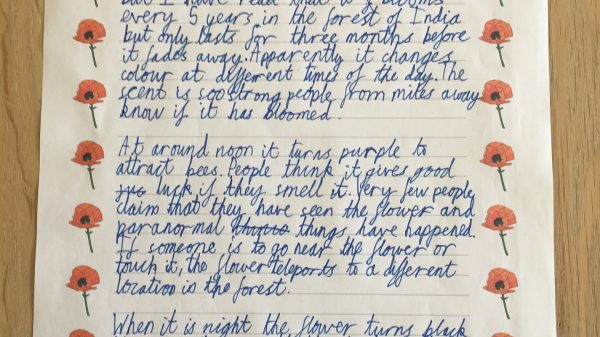 but I have read that it blooms
every 5 years, in the forest of India
but only lasts for three months before
it fades away. Apparently it changes
colour at different times of the day. The
scent is soo strong people from miles away
know if it has bloomed.
At around noon it turns purple to
attract bees. People think it gives good
luck if they smell it. Very few people
claim that they have seen the flower and
paranormal things have happened.
If someone is to go near the flower or
touch it, the flower teleports to a different
location in the forest.
When it is night the flower turns black